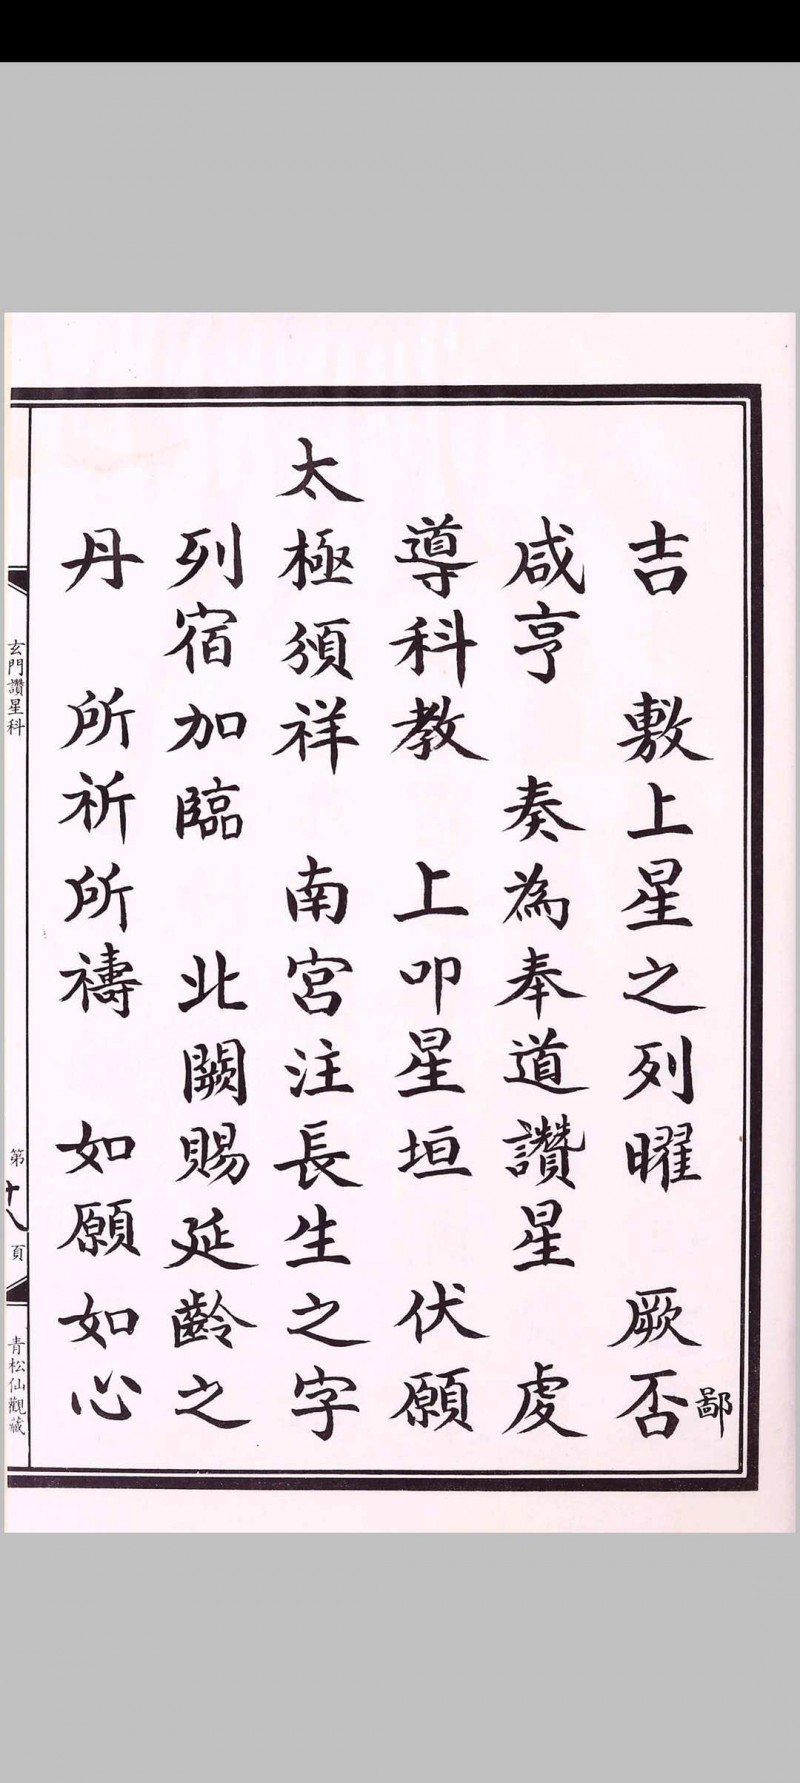 吉　敷上星之列曜　厥否
鄙
咸亨　奏為奉道讚星　虔
導科教　上叩星垣　伏願
太極頒祥　南宮注長生之字
列宿加臨　北闕賜延齡之
丹　所祈所禱　如願如心
玄門讚星科
第十八頁
青松仙觀藏